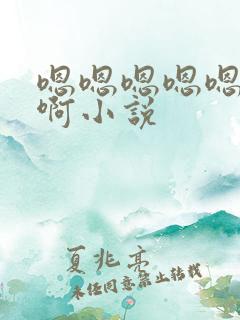 嗯嗯嗯嗯嗯
啊小说
夏兆亮
未经同意禁止转载